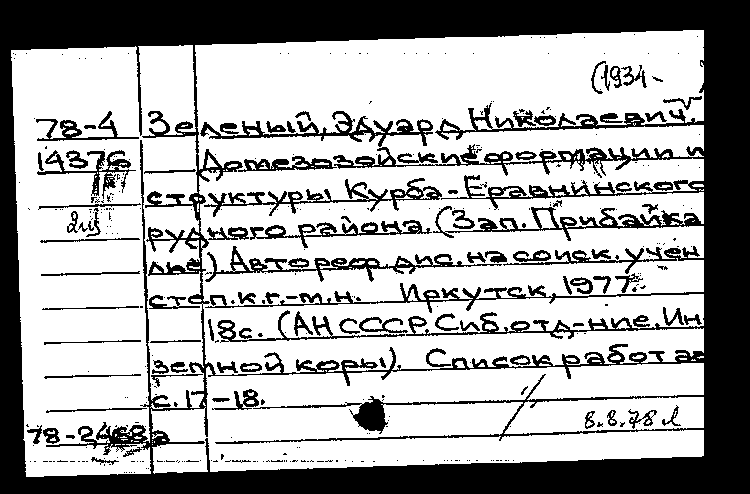 (1934-
78-4 Зеленый, Эдуард Николаевич.
14376 Домезозойские формации и
структуры Курба-Еравнинского
2ш рудного района. (Зап. Прибайка
лье). Автореф. дис. на соиск. учен
степ. к. г.-м. н. Иркутск, 1977.
18с. (АН СССР. Сиб. отд-ние. Ин
земной коры). Список работ ав
с. 17-18.
78-2468а 8.8.78 л